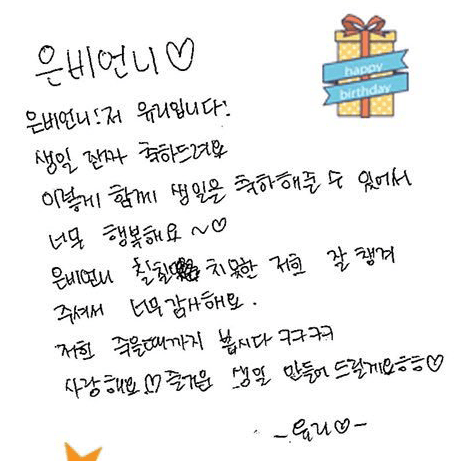 은비언니♡
happy
birthday
은비언니! 저 유리입니다!
생일 진짜 축하드려요
이렇게 함께 생일을 축하해줄 수 있어서
너무 행복해요~♡
은비언니 칠칠 치못한 저희 잘 챙겨
주셔서 너무 감사해요.
저희 죽을때까지 봅시다 ㅋㅋㅋㅋ
사랑해요♡ 즐거운 생일 만들어 드릴게요ㅎㅎ♡
-유리♡-